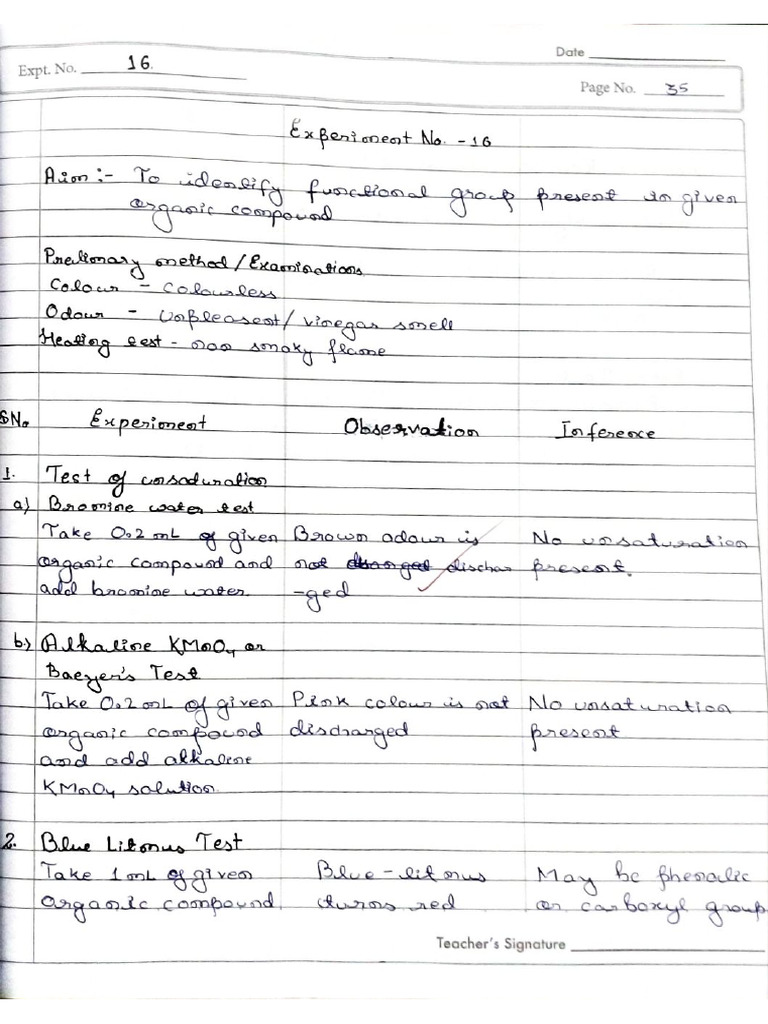 Date
Expt. No. 16.
Page No. 35
Experiment No. -16
Aim :- To identify functional group present in given
organic compound
Prelionary method/Examinations
Colour - Colourless
Odour - Unpleasent/ vinegar smell
Heating test - non smoky flame
SNo Experiment Observation Inference
1. Test of unsaduration
a) Bromine water test
Take 0.2 mL of given Brown odour is No unsaturation
organic compound and not dischar present.
add bromine water. -ged
b.) Alkaline KMnO4 or
Baeyer's Test
Take 0.2 mL of given Pink colour is not No unsaturation
organic compound discharged present
and add alkaline
KMnO4 solution.
2. Blue Litmus Test
Take 1 mL of given Blue-litmus May be phenolic
organic compound. turns red or carboxyl group
Teacher's Signature